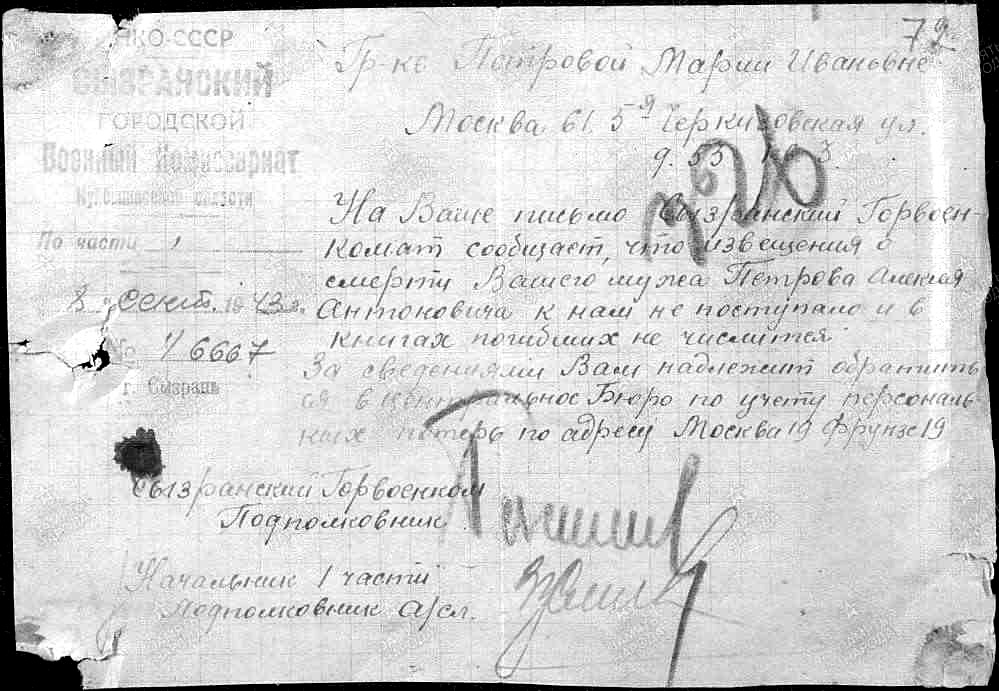 72
НКО-СССР
СЫЗРАНСКИЙ
ГОРОДСКОЙ
Военный Комиссариат
Куйбышевской области
По части 1
8 " сент. 1943 г.
№ 1/6667
г. Сызрань
Гр-ке Петровой Марии Ивановне
Москва 61. 5я Черкизовская ул.
д. 53 3.
На Ваше письмо Сызранский Горвоен-
комат сообщает, что извещения о
смерти Вашего мужа Петрова Алексея
Антоновича к нам не поступало и в
книгах погибших не числится
За сведениями Вам надлежит обратить
ся в центральное Бюро по учету персональ-
ных потерь по адресу Москва 19 Фрунзе 19
Сызранский Горвоенком
Подполковник
Начальник 1 части
Подполковник а/сл.